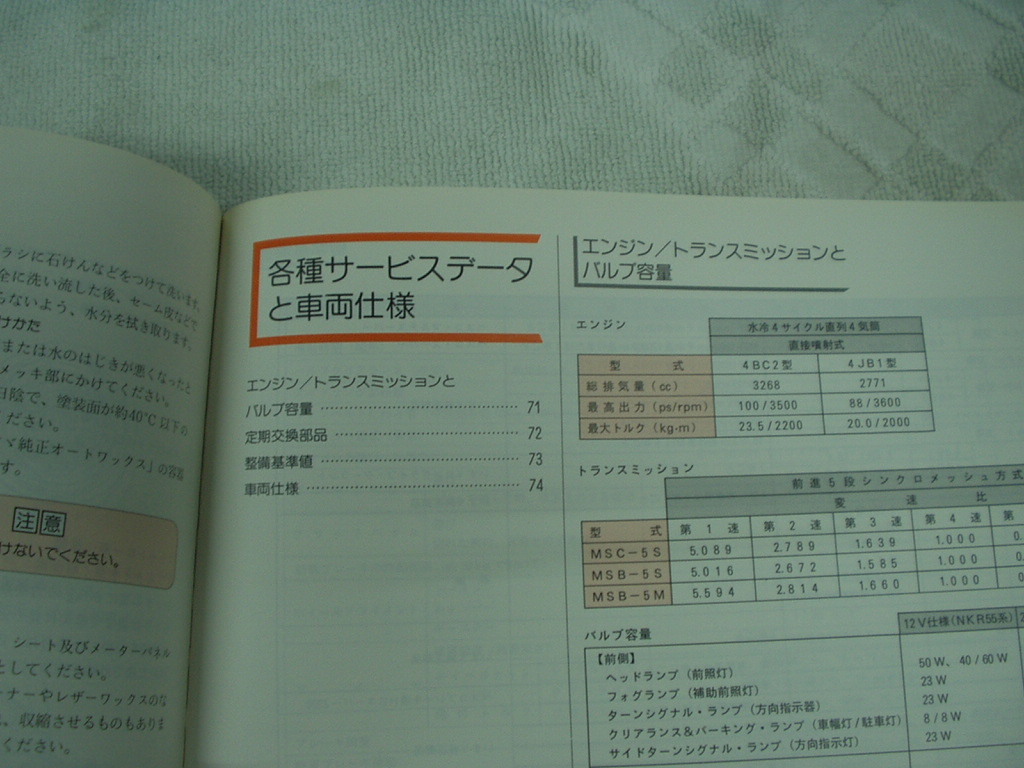 ラシに石けんなどをつけて洗います。
全に洗い流した後、セーム皮などで
らないよう、水分を拭き取ります。
けかた
または水のはじきが悪くなったと
メッキ部にかけてください。
日陰で、塗装面が約40℃以下の
ださい。
純正オートワックス」の容器
す。
注意
けないでください。
シート及びメーターパネル
としてください。
ナーやレザーワックスのな
、収縮させるものもありま
ください。
各種サービスデータ
と車両仕様
エンジン／トランスミッションと
バルブ容量 71
定期交換部品 72
整備基準値 73
車両仕様 74
エンジン／トランスミッションと
バルブ容量
エンジン
水冷4サイクル直列4気筒
直接噴射式
型式 4BC2型 4JB1型
総排気量(cc) 3268 2771
最高出力(ps/rpm) 100/3500 88/3600
最大トルク(kg-m) 23.5/2200 20.0/2000
トランスミッション
前進5段シンクロメッシュ方式
変速比
型式 第1速 第2速 第3速 第4速 第
MSC-5S 5.089 2.789 1.639 1.000 0.
MSB-5S 5.016 2.672 1.585 1.000 0.
MSB-5M 5.594 2.814 1.660 1.000 0.
バルブ容量
12V仕様(NKR55系) 2
【前側】
ヘッドランプ(前照灯) 50W、40/60W
フォグランプ(補助前照灯) 23W
ターンシグナル・ランプ(方向指示器) 23W
クリアランス&パーキング・ランプ(車幅灯/駐車灯) 8/8W
サイドターンシグナル・ランプ(方向指示灯) 23W